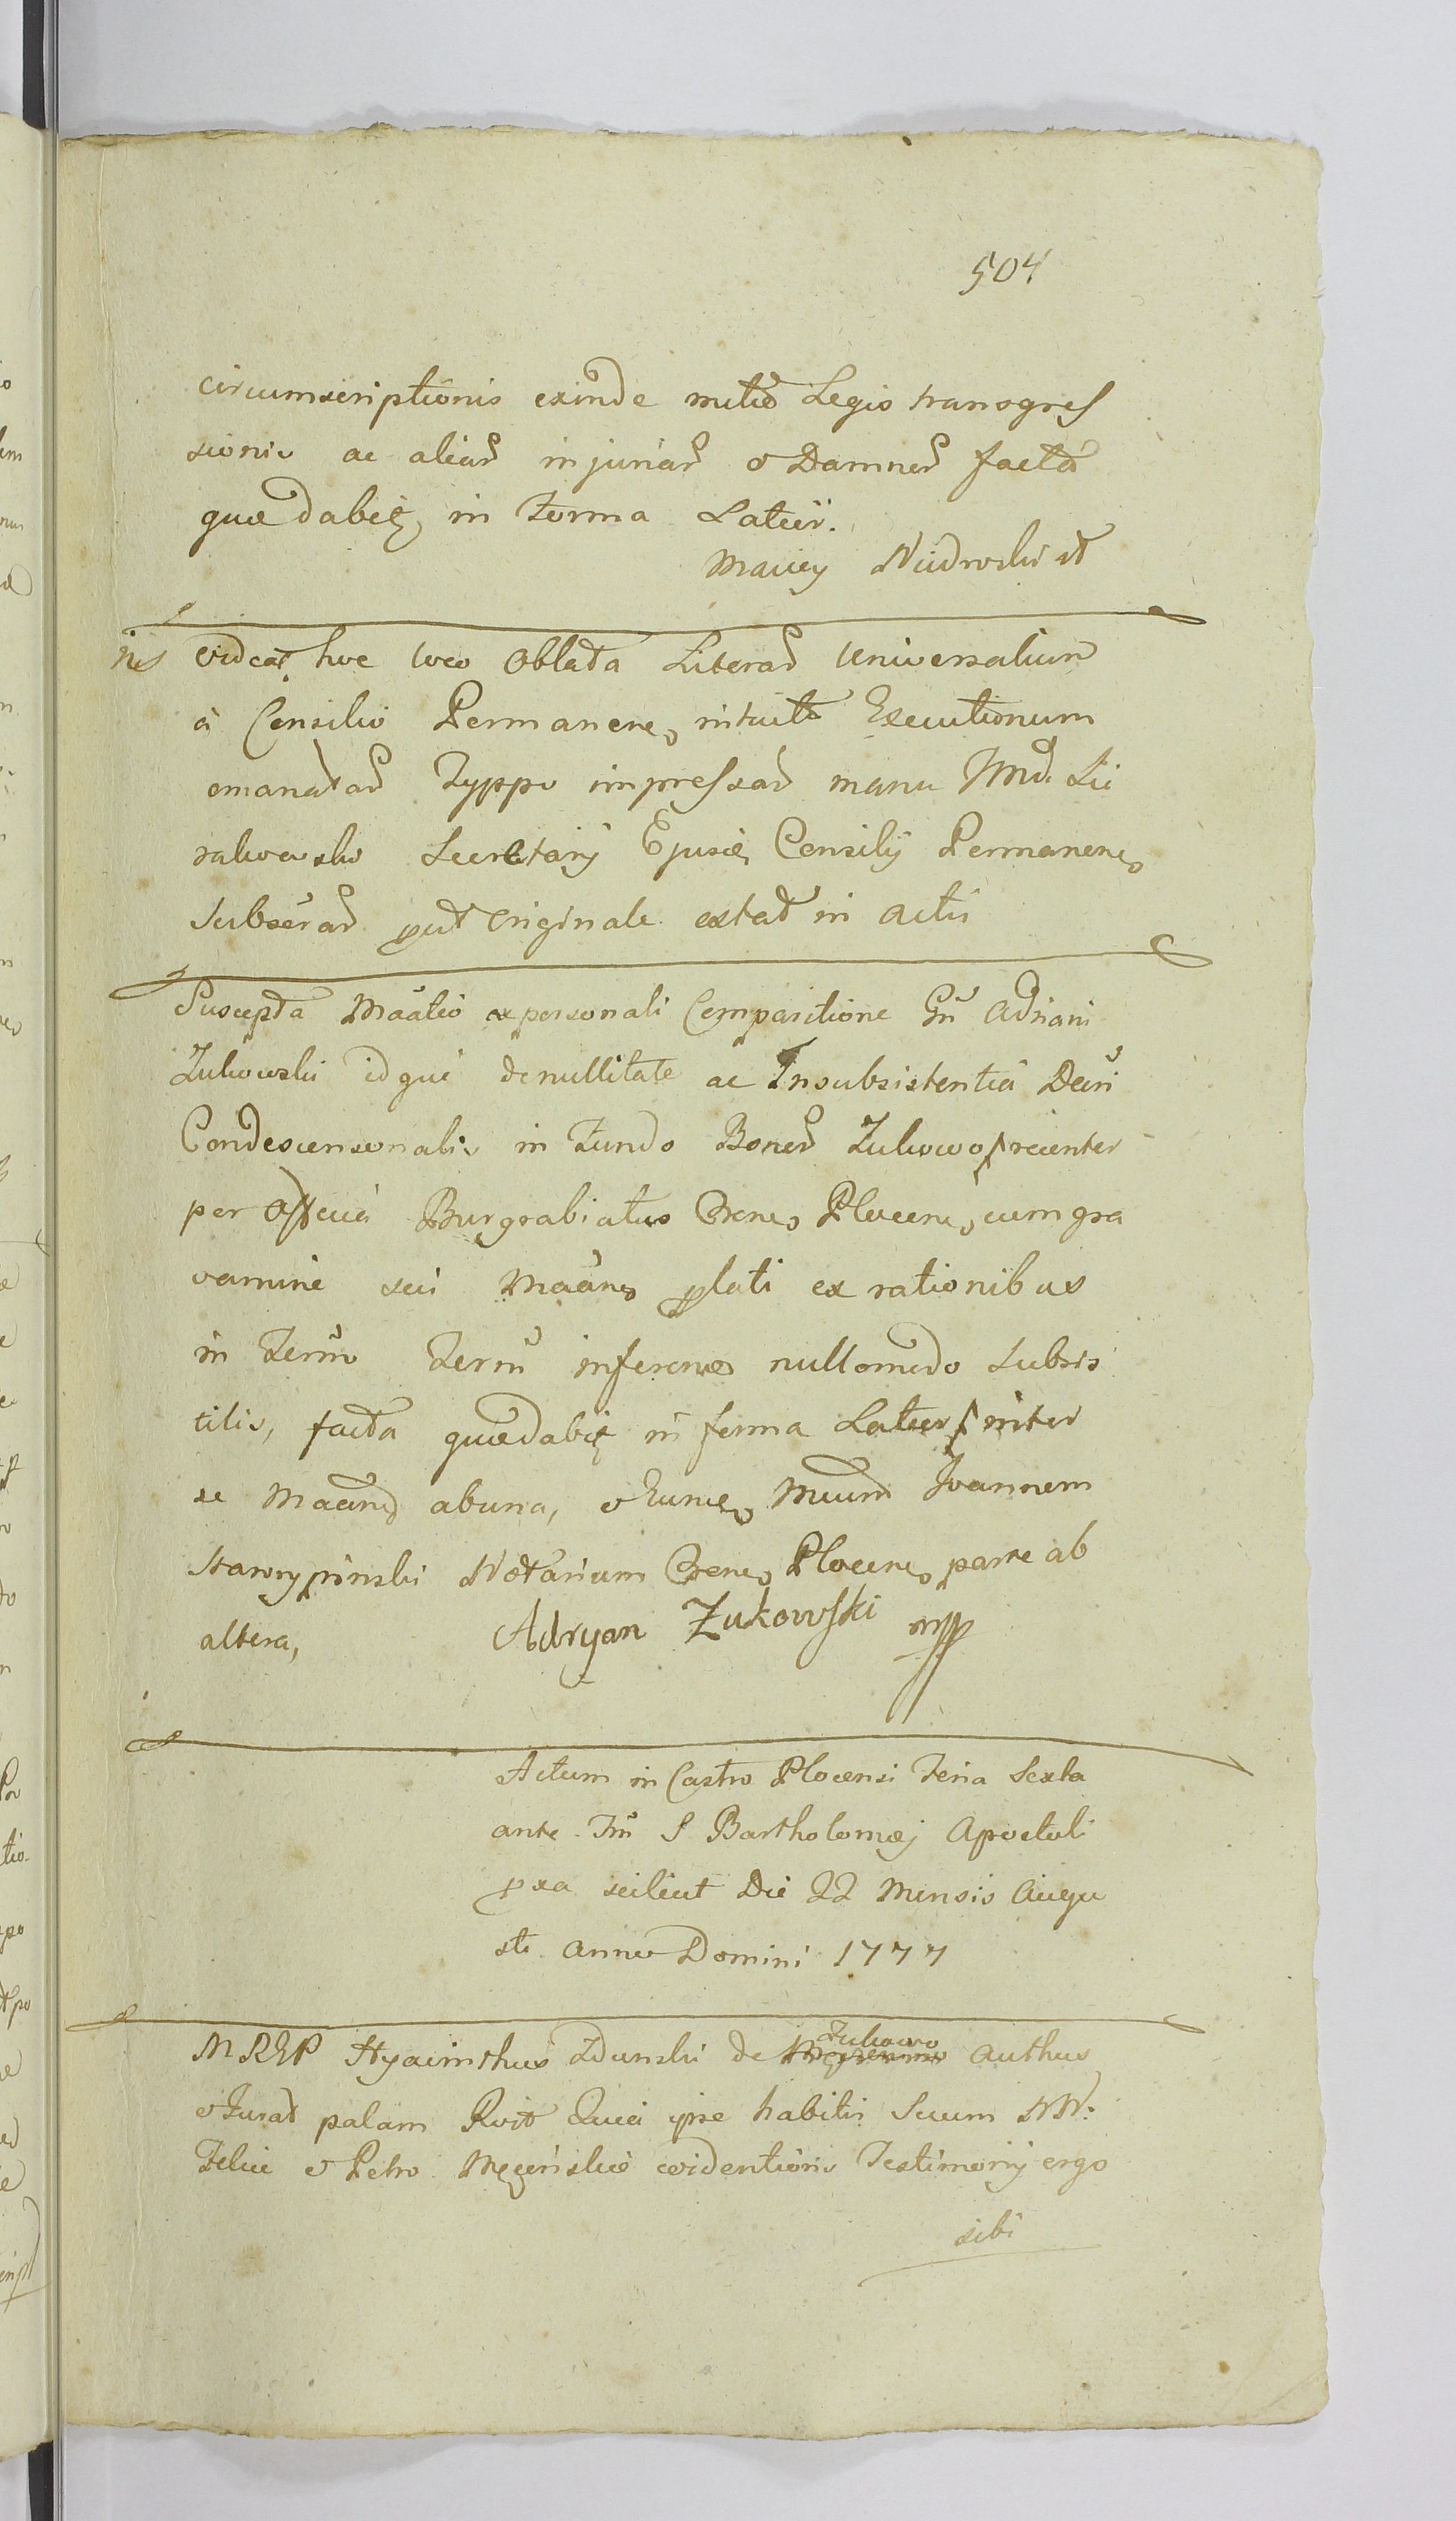 504
circumscriptionis exinde Legis transgres
sionis ac aliar injuriar & Damnor facta
quae dabit in forma Latiori.
Maciey
Ns Videat hoc loco Oblata Literar Universalium
à Consilio Permanen intuitu Executionum
emanatar Typpo impressar manu
Secretarij Ejusd Consilij Permanen
Subscrar put Originale extat in actis
Suscepta Maãtio ex personali Comparitione Gn̄ Adriani
Zukowski idque de nullitate ac Insubsistentia Decri
Condescensionalis in Fundo Bonor Zukowo recenter
per Offciū Burgrabiatus Cren Plocen, cum gra
vamine sui Maãn plati ex rationibus
in Termo Termi inferen nullomodo subsis
tilis, facta quae dabit in forma Latiori inter
se Maãn ab una, & Eund Mcum Joannem
Starorypinski Notarium Cren Plocen parte ab
altera,
Adryan Zukowski mpp
Actum in Castro Plocensi Feria Sexta
ante Fm S Bartholomæj Apostoli
pxa scilicet Die 22 Mensis Augu
sti Anno Domini 1777
MREP Hyacinthus Zdunski de Zukowo authus
& Jurat palam Rvit Quia ipse habitis Secum NN.
Felice & Petro evidentioris Testimonij ergo
sibi